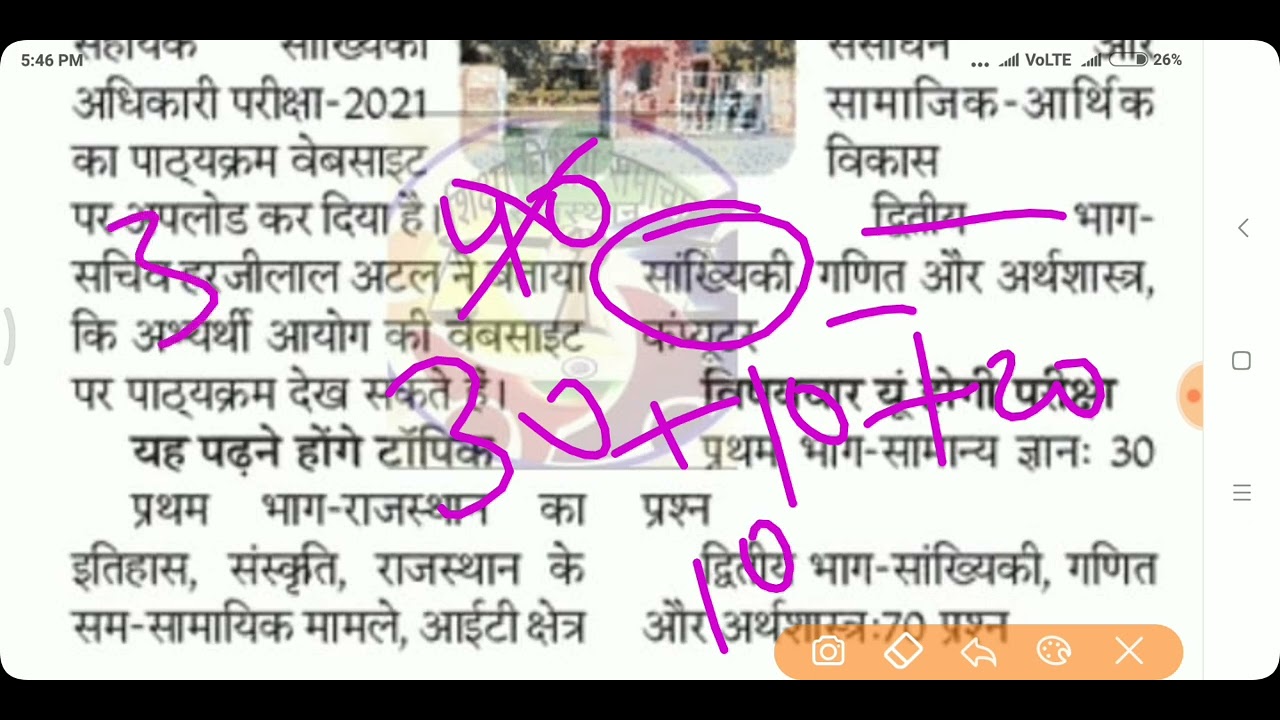 5:46 PM
VoLTE 26%
सहायक सांख्यिकी
अधिकारी परीक्षा-2021
का पाठ्यक्रम वेबसाइट
पर अपलोड कर दिया है।
सचिव हरजीलाल अटल ने बताया
कि अभ्यर्थी आयोग की वेबसाइट
पर पाठ्यक्रम देख सकते हैं।
यह पढ़ने होंगे टॉपिक
प्रथम भाग-राजस्थान का
इतिहास, संस्कृति, राजस्थान के
सम-सामायिक मामले, आईटी क्षेत्र
संसाधन और
सामाजिक-आर्थिक
विकास
द्वितीय भाग-
सांख्यिकी, गणित और अर्थशास्त्र,
कंप्यूटर
विषयवार यूं होगी परीक्षा
प्रथम भाग-सामान्य ज्ञानः 30
प्रश्न
द्वितीय भाग-सांख्यिकी, गणित
और अर्थशास्त्र:70 प्रश्न
3
30+10+20
10